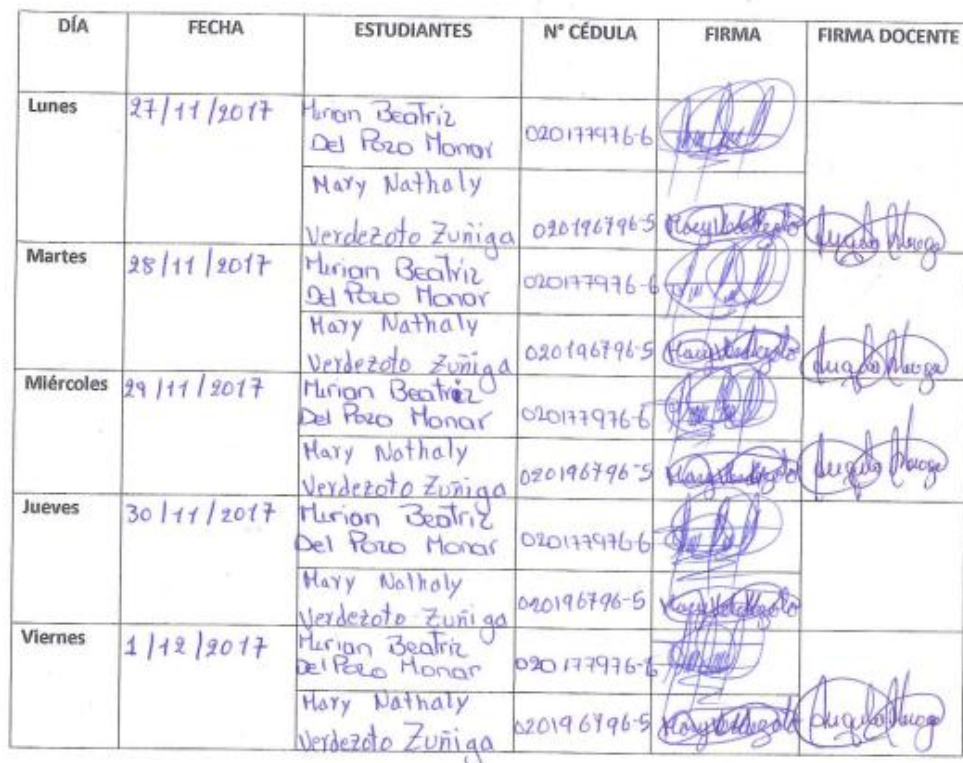 DÍA FECHA ESTUDIANTES N° CÉDULA FIRMA FIRMA DOCENTE
Lunes 27/11/2017 Mirian Beatriz
Del Pozo Monar 020177976-6
Mary Nathaly
Verdezoto Zuñiga 020196796-5
Martes 28/11/2017 Mirian Beatriz
Del Pozo Monar 020177976-6
Mary Nathaly
Verdezoto Zuñiga 020196796-5
Miércoles 29/11/2017 Mirian Beatriz
Del Pozo Monar 020177976-6
Mary Nathaly
Verdezoto Zuñiga 020196796-5
Jueves 30/11/2017 Mirian Beatriz
Del Pozo Monar 020177976-6
Mary Nathaly
Verdezoto Zuñiga 020196796-5
Viernes 1/12/2017 Mirian Beatriz
Del Pozo Monar 020177976-6
Mary Nathaly
Verdezoto Zuñiga 020196796-5